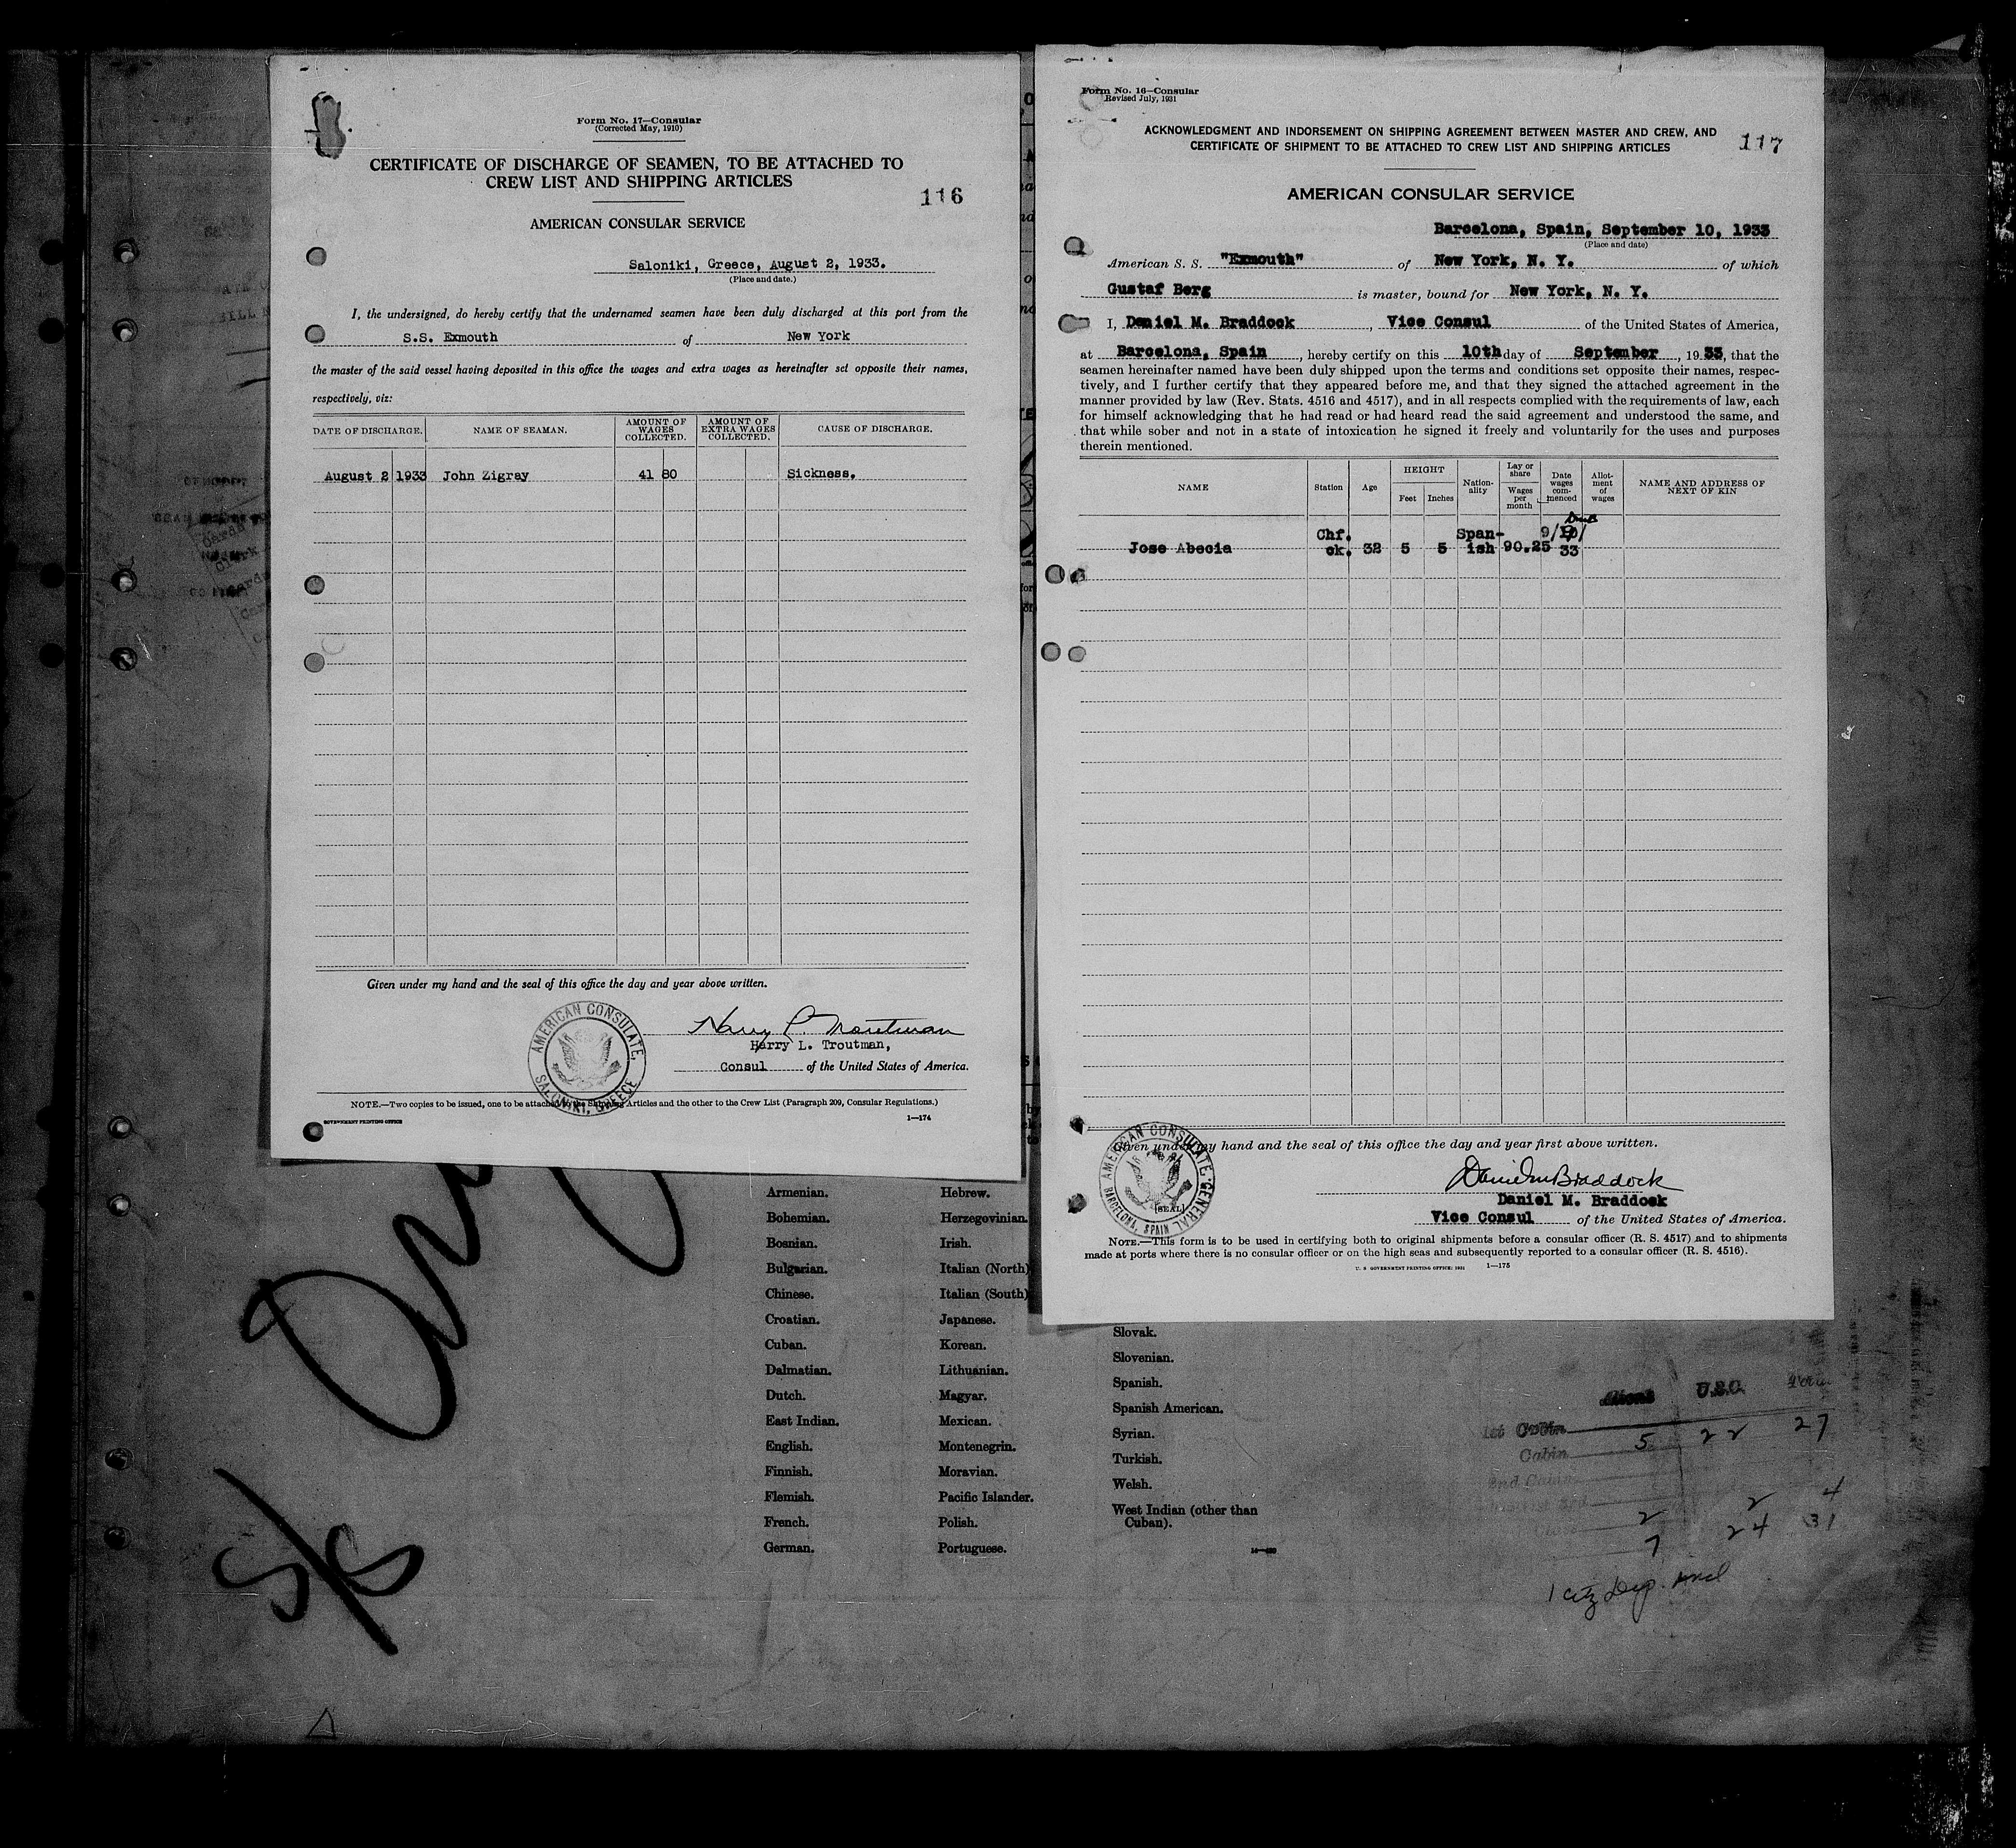 Form No. 17—Consular
(Corrected May, 1910)
CERTIFICATE OF DISCHARGE OF SEAMEN, TO BE ATTACHED TO
CREW LIST AND SHIPPING ARTICLES
116
AMERICAN CONSULAR SERVICE
Saloniki, Greece, August 2, 1933.
(Place and date.)
I, the undersigned, do hereby certify that the undernamed seamen have been duly discharged at this port from the
S.S. Exmouth of New York
the master of the said vessel having deposited in this office the wages and extra wages as hereinafter set opposite their names,
respectively, viz:
DATE OF DISCHARGE. NAME OF SEAMAN. AMOUNT OF WAGES COLLECTED. AMOUNT OF EXTRA WAGES COLLECTED. CAUSE OF DISCHARGE.
August 2 1933 John Zigray 41 80 Sickness.
Given under my hand and the seal of this office the day and year above written.
Harry L. Troutman
Harry L. Troutman,
Consul of the United States of America.
AMERICAN CONSULATE,
SALONIKI, GREECE
NOTE.—Two copies to be issued, one to be attached to the Shipping Articles and the other to the Crew List (Paragraph 209, Consular Regulations.)
GOVERNMENT PRINTING OFFICE 1—174
Form No. 16—Consular
Revised July, 1931
ACKNOWLEDGMENT AND INDORSEMENT ON SHIPPING AGREEMENT BETWEEN MASTER AND CREW, AND
CERTIFICATE OF SHIPMENT TO BE ATTACHED TO CREW LIST AND SHIPPING ARTICLES
117
AMERICAN CONSULAR SERVICE
Barcelona, Spain, September 10, 1933
(Place and date)
American S. S. "Exmouth" of New York, N. Y. of which
Gustaf Berg is master, bound for New York, N. Y.
I, Daniel M. Braddock, Vice Consul of the United States of America,
at Barcelona, Spain, hereby certify on this 10th day of September, 1933, that the
seamen hereinafter named have been duly shipped upon the terms and conditions set opposite their names, respec-
tively, and I further certify that they appeared before me, and that they signed the attached agreement in the
manner provided by law (Rev. Stats. 4516 and 4517), and in all respects complied with the requirements of law, each
for himself acknowledging that he had read or had heard read the said agreement and understood the same, and
that while sober and not in a state of intoxication he signed it freely and voluntarily for the uses and purposes
therein mentioned.
NAME Station Age HEIGHT Feet Inches Nation-ality Lay or share Wages per month Date wages com-menced Allot-ment of wages NAME AND ADDRESS OF NEXT OF KIN
Chf. Span- 9/10/
Jose Abecia ck. 32 5 5 ish 90.25 33
Given under my hand and the seal of this office the day and year first above written.
Daniel M Braddock
Daniel M. Braddock
Vice Consul of the United States of America.
AMERICAN CONSULATE GENERAL
BARCELONA, SPAIN
[SEAL]
NOTE.—This form is to be used in certifying both to original shipments before a consular officer (R. S. 4517) and to shipments
made at ports where there is no consular officer or on the high seas and subsequently reported to a consular officer (R. S. 4516).
U. S. GOVERNMENT PRINTING OFFICE: 1931 1—175
Armenian. Hebrew.
Bohemian. Herzegovinian.
Bosnian. Irish.
Bulgarian. Italian (North)
Chinese. Italian (South)
Croatian. Japanese. Slovak.
Cuban. Korean. Slovenian.
Dalmatian. Lithuanian. Spanish.
Dutch. Magyar. Spanish American.
East Indian. Mexican. Syrian.
English. Montenegrin. Turkish.
Finnish. Moravian. Welsh.
Flemish. Pacific Islander. West Indian (other than
French. Polish. Cuban).
German. Portuguese.
S/S
U.S.C.
1st Cabin 5 22 27
Cabin
2nd Cabin
2 2 4
7 24 31